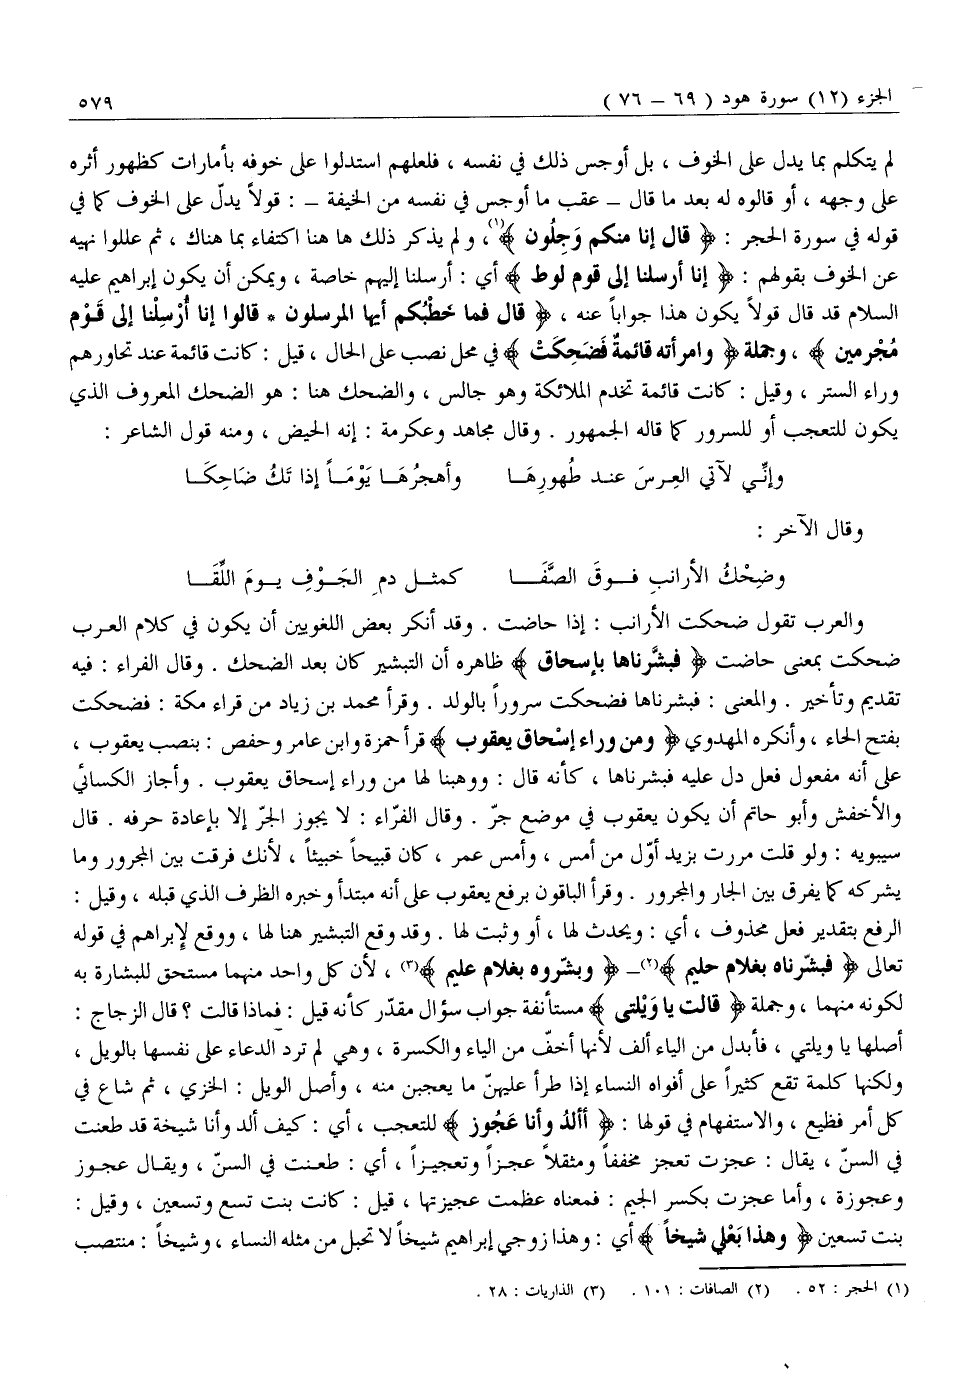 الجزء (١٢) سورة هود ( ٦٩ – ٧٦ ) ٥٧٩
لم يتكلم بما يدل على الخوف ، بل أوجس ذلك في نفسه ، فلعلهم استدلوا على خوفه بأمارات كظهور أثره
على وجهه ، أو قالوه له بعد ما قال – عقب ما أوجس في نفسه من الخيفة – : قولاً يدلّ على الخوف كما في
قوله في سورة الحجر : ﴿ قال إنا منكم وَجِلُون ﴾(١)، ولم يذكر ذلك ها هنا اكتفاء بما هناك ، ثم عللوا نهيه
عن الخوف بقولهم : ﴿ إنا أرسلنا إلى قوم لوط ﴾ أي : أرسلنا إليهم خاصة ، ويمكن أن يكون إبراهيم عليه
السلام قد قال قولاً يكون هذا جواباً عنه ، ﴿ قال فما خَطْبُكم أيها المرسلون * قالوا إنا أُرْسِلْنا إلى قَوْم
مُجْرمين ﴾ ، وجملة ﴿ وامرأته قائمةٌ فَضَحِكَتْ ﴾ في محل نصب على الحال ، قيل : كانت قائمة عند تحاورهم
وراء الستر ، وقيل : كانت قائمة تخدم الملائكة وهو جالس ، والضحك هنا : هو الضحك المعروف الذي
يكون للتعجب أو للسرور كما قاله الجمهور . وقال مجاهد وعكرمة : إنه الحيض ، ومنه قول الشاعر :
وإنِّي لآتي العِرسَ عند طُهورِهَا وأهجرُهَا يَوْمَاً إذا تَكُ ضَاحِكَا
وقال الآخر :
وضِحْكُ الأرانبِ فوقَ الصَّفَا كمثل دمِ الجَوْفِ يومَ اللِّقَا
والعرب تقول ضحكت الأرانب : إذا حاضت . وقد أنكر بعض اللغويين أن يكون في كلام العرب
ضحكت بمعنى حاضت ﴿ فبشَّرناها بإسحاق ﴾ ظاهره أن التبشير كان بعد الضحك . وقال الفراء : فيه
تقديم وتأخير . والمعنى : فبشرناها فضحكت سروراً بالولد . وقرأ محمد بن زياد من قراء مكة : فضحكت
بفتح الحاء ، وأنكره المهدوي ﴿ ومن وراء إسْحاق يعقوب ﴾ قرأ حمزة وابن عامر وحفص : بنصب يعقوب ،
على أنه مفعول فعل دل عليه فبشرناها ، كأنه قال : ووهبنا لها من وراء إسحاق يعقوب . وأجاز الكسائي
والأخفش وأبو حاتم أن يكون يعقوب في موضع جرّ . وقال الفرّاء : لا يجوز الجرّ إلا بإعادة حرفه . قال
سيبويه : ولو قلت مررت بزيد أوّل من أمس ، وأمس عمر ، كان قبيحاً خبيثاً ، لأنك فرقت بين المجرور وما
يشركه كما يفرق بين الجار والمجرور . وقرأ الباقون برفع يعقوب على أنه مبتدأ وخبره الظرف الذي قبله ، وقيل :
الرفع بتقدير فعل محذوف ، أي : ويحدث لها ، أو وثبت لها . وقد وقع التبشير هنا لها ، ووقع لإبراهيم في قوله
تعالى ﴿ فبشّرناه بغلام حليم ﴾(٢)– ﴿ وبشّروه بغلام عليم ﴾(٣) ، لأن كل واحد منهما مستحق للبشارة به
لكونه منهما ، وجملة ﴿ قالت يا وَيْلتى ﴾ مستأنفة جواب سؤال مقدّر كأنه قيل : فماذا قالت ؟ قال الزجاج :
أصلها يا ويلتي ، فأبدل من الياء ألف لأنها أخفّ من الياء والكسرة ، وهي لم ترد الدعاء على نفسها بالويل ،
ولكنها كلمة تقع كثيراً على أفواه النساء إذا طرأ عليهنّ ما يعجبن منه ، وأصل الويل : الخزي ، ثم شاع في
كل أمر فظيع ، والاستفهام في قولها : ﴿ أألدُ وأنا عَجُوز ﴾ للتعجب ، أي : كيف ألد وأنا شيخة قد طعنت
في السنّ ، يقال : عجزت تعجز مخففاً ومثقلاً عجزاً وتعجيزاً ، أي : طعنت في السنّ ، ويقال عجوز
وعجوزة ، وأما عجزت بكسر الجيم : فمعناه عظمت عجيزتها ، قيل : كانت بنت تسع وتسعين ، وقيل :
بنت تسعين ﴿ وهذا بَعْلي شيخاً ﴾ أي : وهذا زوجي إبراهيم شيخاً لا تحبل من مثله النساء ، وشيخاً : منتصب
(١) الحجر : ٥٢ . (٢) الصافات : ١٠١ . (٣) الذاريات : ٢٨ .